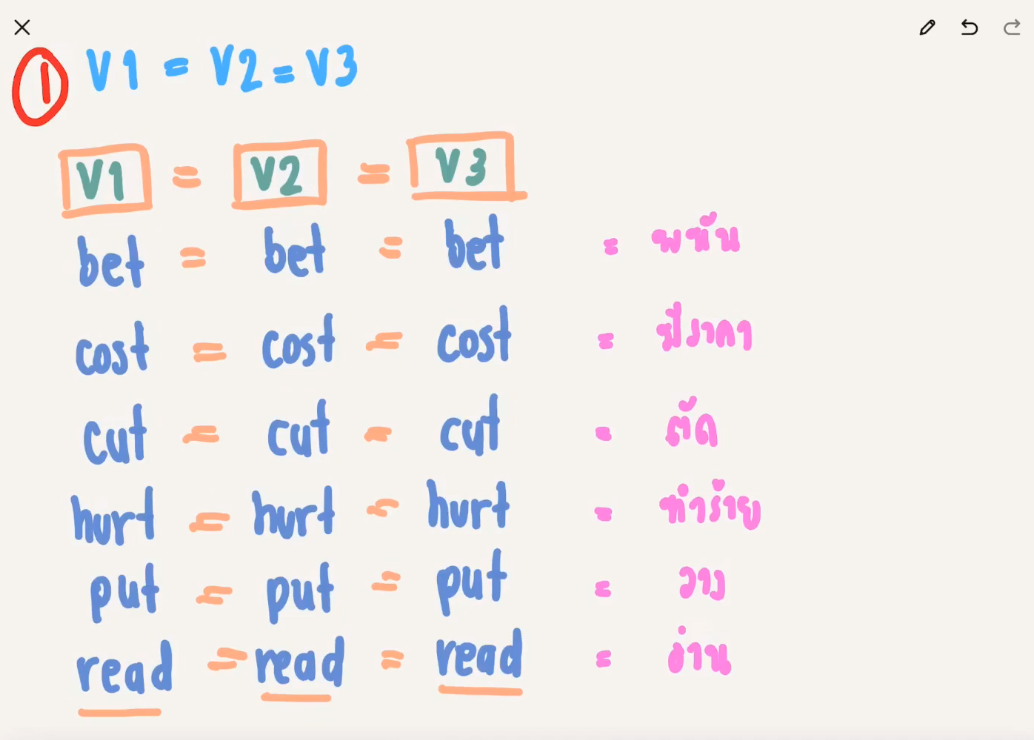 ① V1 = V2 = V3
V1 = V2 = V3
bet = bet = bet = พนัน
cost = cost = cost = มีราคา
cut = cut = cut = ตัด
hurt = hurt = hurt = ทำร้าย
put = put = put = วาง
read = read = read = อ่าน